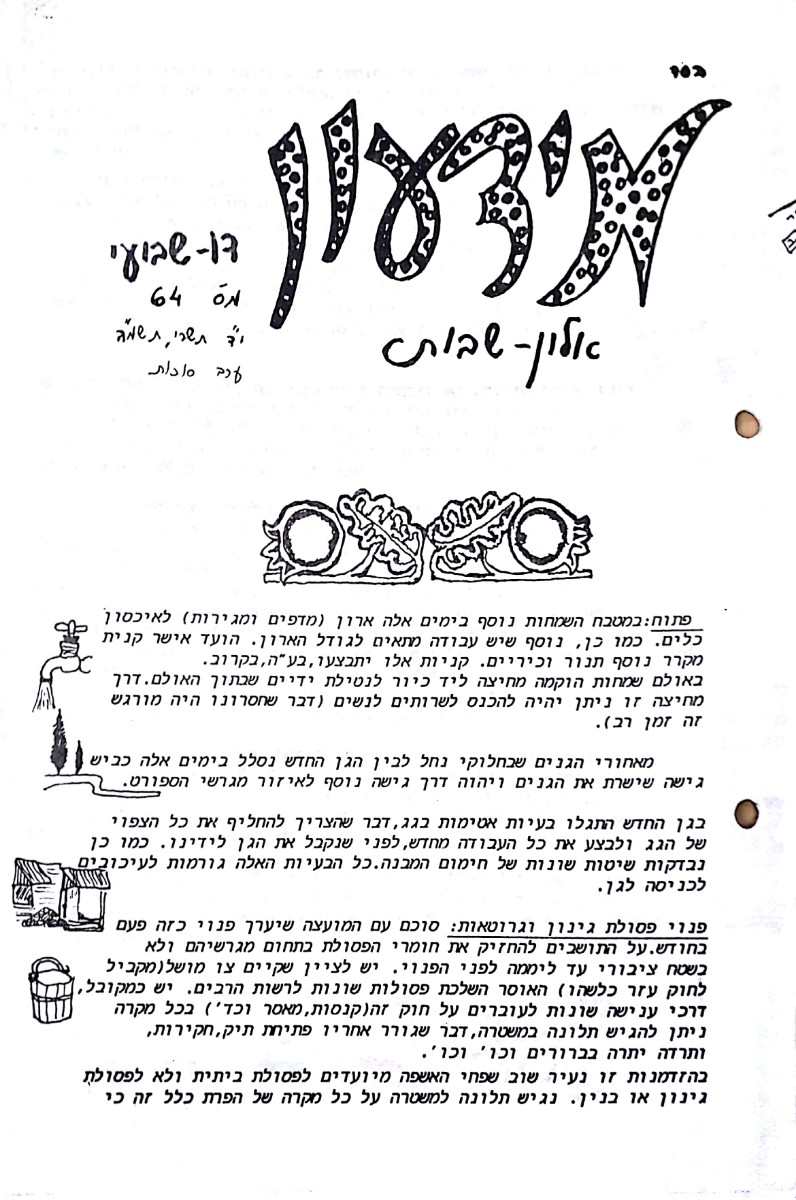 בסד
מידעון
אלון-שבות
דו-שבועי
מס 64
י"ד תשרי, תשמ"ה
ערב סוכות
פתוח:במטבח השמחות נוסף בימים אלה ארון (מדפים ומגירות) לאיכסון
כלים. כמו כן, נוסף שיש עבודה מתאים לגודל הארון. הועד אישר קנית
מקרר נוסף תנור וכיריים. קניות אלו יתבצעו,בע"ה,בקרוב.
באולם שמחות הוקמה מחיצה ליד כיור לנטילת ידיים שבתוך האולם.דרך
מחיצה זו ניתן יהיה להכנס לשרותים לנשים (דבר שחסרונו היה מורגש
זה זמן רב).
מאחורי הגנים שבחלוקי נחל לבין הגן החדש נסלל בימים אלה כביש
גישה שישרת את הגנים ויהוה דרך גישה נוסף לאיזור מגרשי הספורט.
בגן החדש התגלו בעיות אטימות בגג,דבר שהצריך להחליף את כל הצפוי
של הגג ולבצע את כל העבודה מחדש,לפני שנקבל את הגן לידינו. כמו כן
נבדקות שיטות שונות של חימום המבנה.כל הבעיות האלה גורמות לעיכובים
לכניסה לגן.
פנוי פסולת גינון וגרוטאות: סוכם עם המועצה שיערך פנוי כזה פעם
בחודש.על התושבים להחזיק את חומרי הפסולת בתחום מגרשיהם ולא
בשטח ציבורי עד ליממה לפני הפנוי. יש לציין שקיים צו מושל(מקביל
לחוק עזר כלשהו) האוסר השלכת פסולות שונות לרשות הרבים. יש כמקובל,
דרכי ענישה שונות לעוברים על חוק זה(קנסות,מאסר וכד') בכל מקרה
ניתן להגיש תלונה במשטרה,דבר שגורר אחריו פתיחת תיק,חקירות,
ותרדה יתרה בברורים וכו' וכו'.
בהזדמנות זו נעיר שוב שפחי האשפה מיועדים לפסולת ביתית ולא לפסולת
גינון או בנין. נגיש תלונה למשטרה על כל מקרה של הפרת כלל זה כי